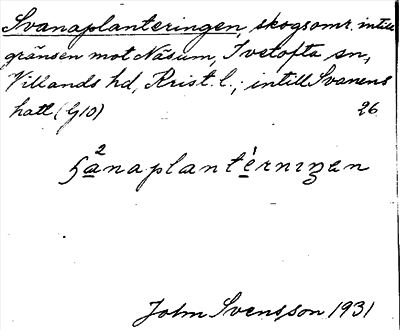 Svanaplanteringen, skogsomr. intill
gränsen mot Näsum, Ivetofta sn,
Villands hd, Krist. l.; intill Svanens
hatt (G10) 26
ʂ²anaplantérniŋen
John Svensson 1931